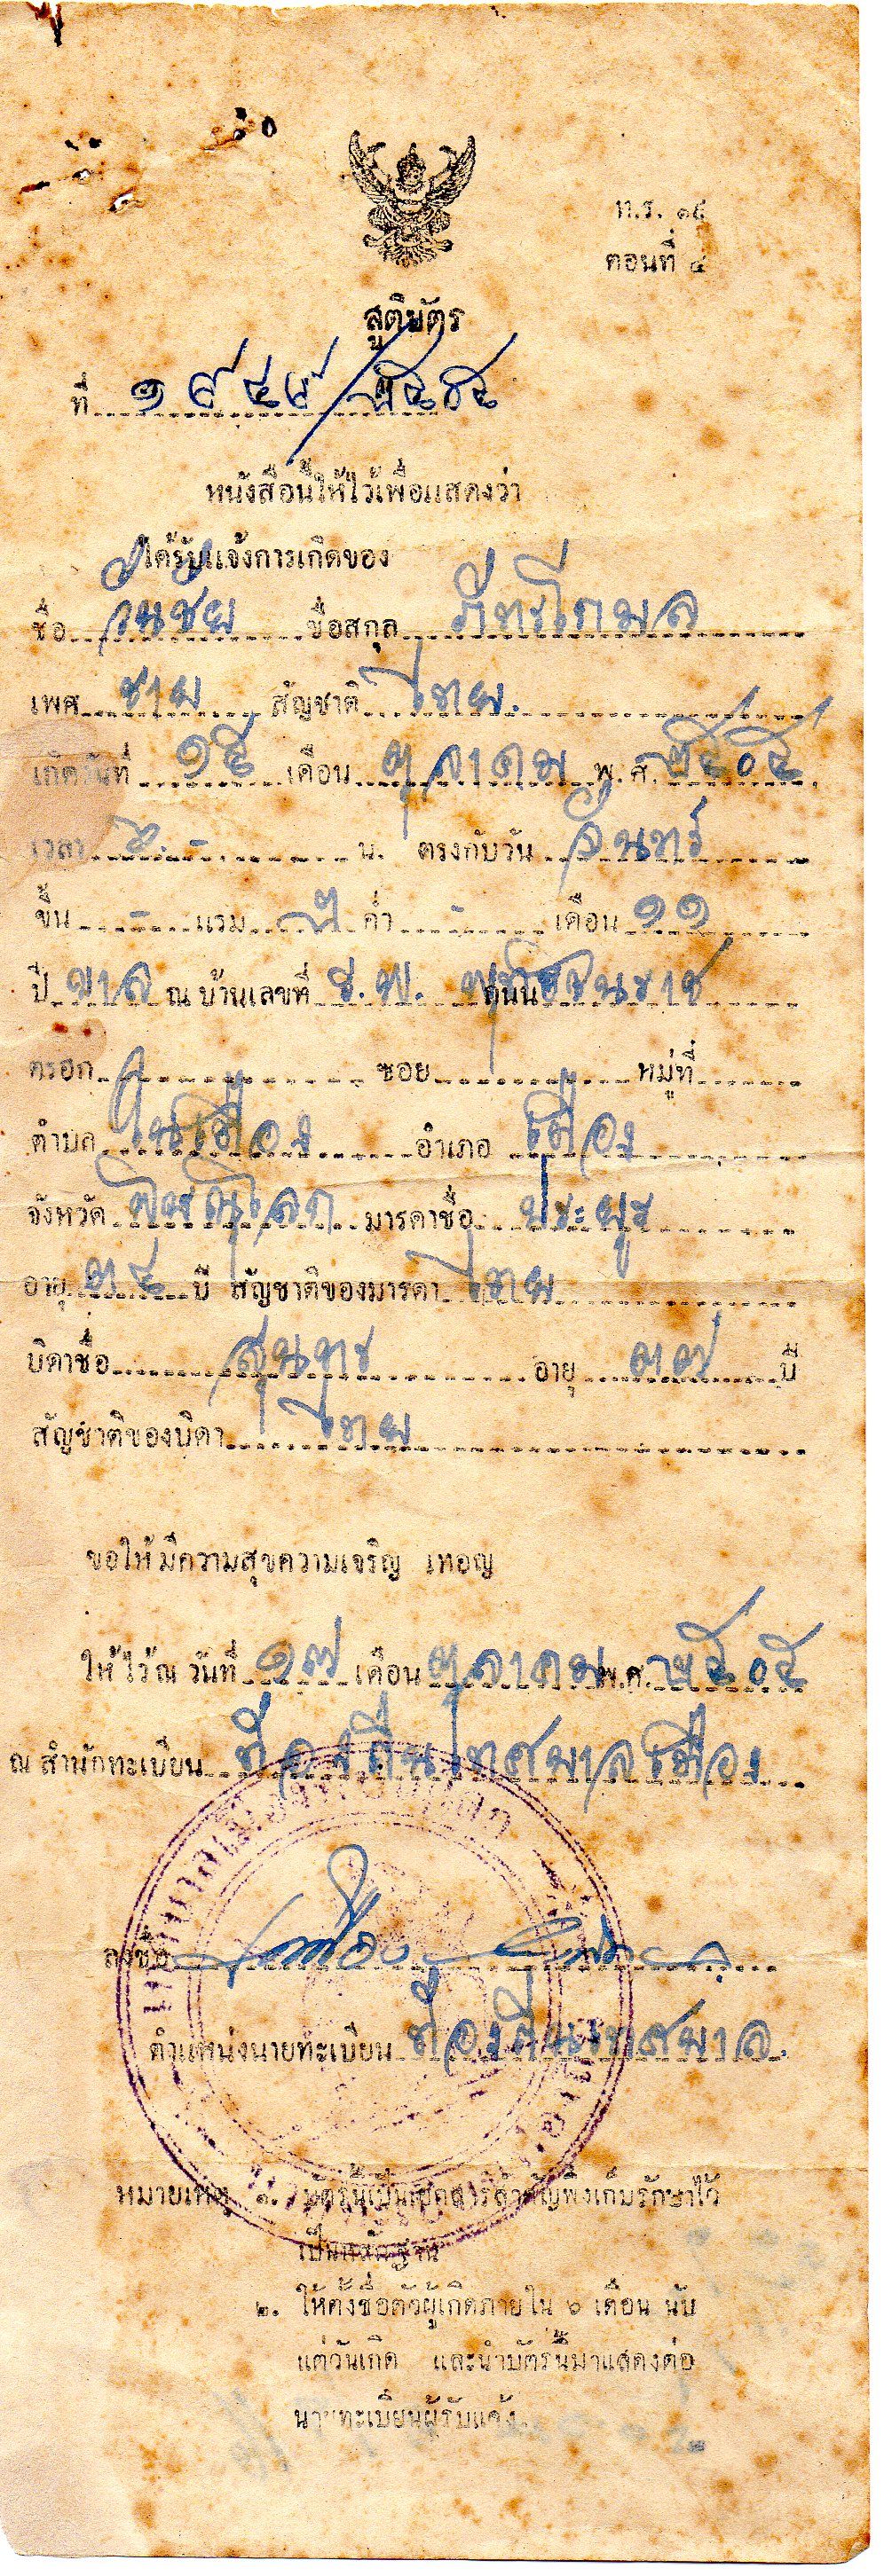 ท.ร. ๑๔
ตอนที่ ๔
สูติบัตร
ที่ ๑๙๔๙/๒๕๐๕
หนังสือนี้ให้ไว้เพื่อแสดงว่า
ได้รับแจ้งการเกิดของ
ชื่อ วันชัย ชื่อสกุล ภัทรโกมล
เพศ ชาย สัญชาติ ไทย
เกิดวันที่ ๑๕ เดือน ตุลาคม พ.ศ. ๒๕๐๕
เวลา น. ตรงกับวัน จันทร์
ขึ้น - แรม ๒ ค่ำ - เดือน ๑๑
ปี ขาล ณ บ้านเลขที่ ร.พ. พุทธชินราช ถนน
ตรอก ซอย หมู่ที่
ตำบล ในเมือง อำเภอ เมือง
จังหวัด พิษณุโลก มารดาชื่อ ประยูร
อายุ ๓๔ ปี สัญชาติของมารดา ไทย
บิดาชื่อ สุนทร อายุ ๓๗ ปี
สัญชาติของบิดา ไทย
ขอให้มีความสุขความเจริญ เทอญ
ให้ไว้ ณ วันที่ ๑๗ เดือน ตุลาคม พ.ศ. ๒๕๐๕
ณ สำนักทะเบียน ท้องถิ่นเทศบาลเมือง
ลงชื่อ
ตำแหน่งนายทะเบียน ท้องถิ่นเทศบาล
หมายเหตุ ๑. บัตรนี้เป็นเอกสารสำคัญพึงเก็บรักษาไว้
เป็นหลักฐาน
๒. ให้ตั้งชื่อตัวผู้เกิดภายใน ๖ เดือน นับ
แต่วันเกิด และนำบัตรนี้มาแสดงต่อ
นายทะเบียนผู้รับแจ้ง